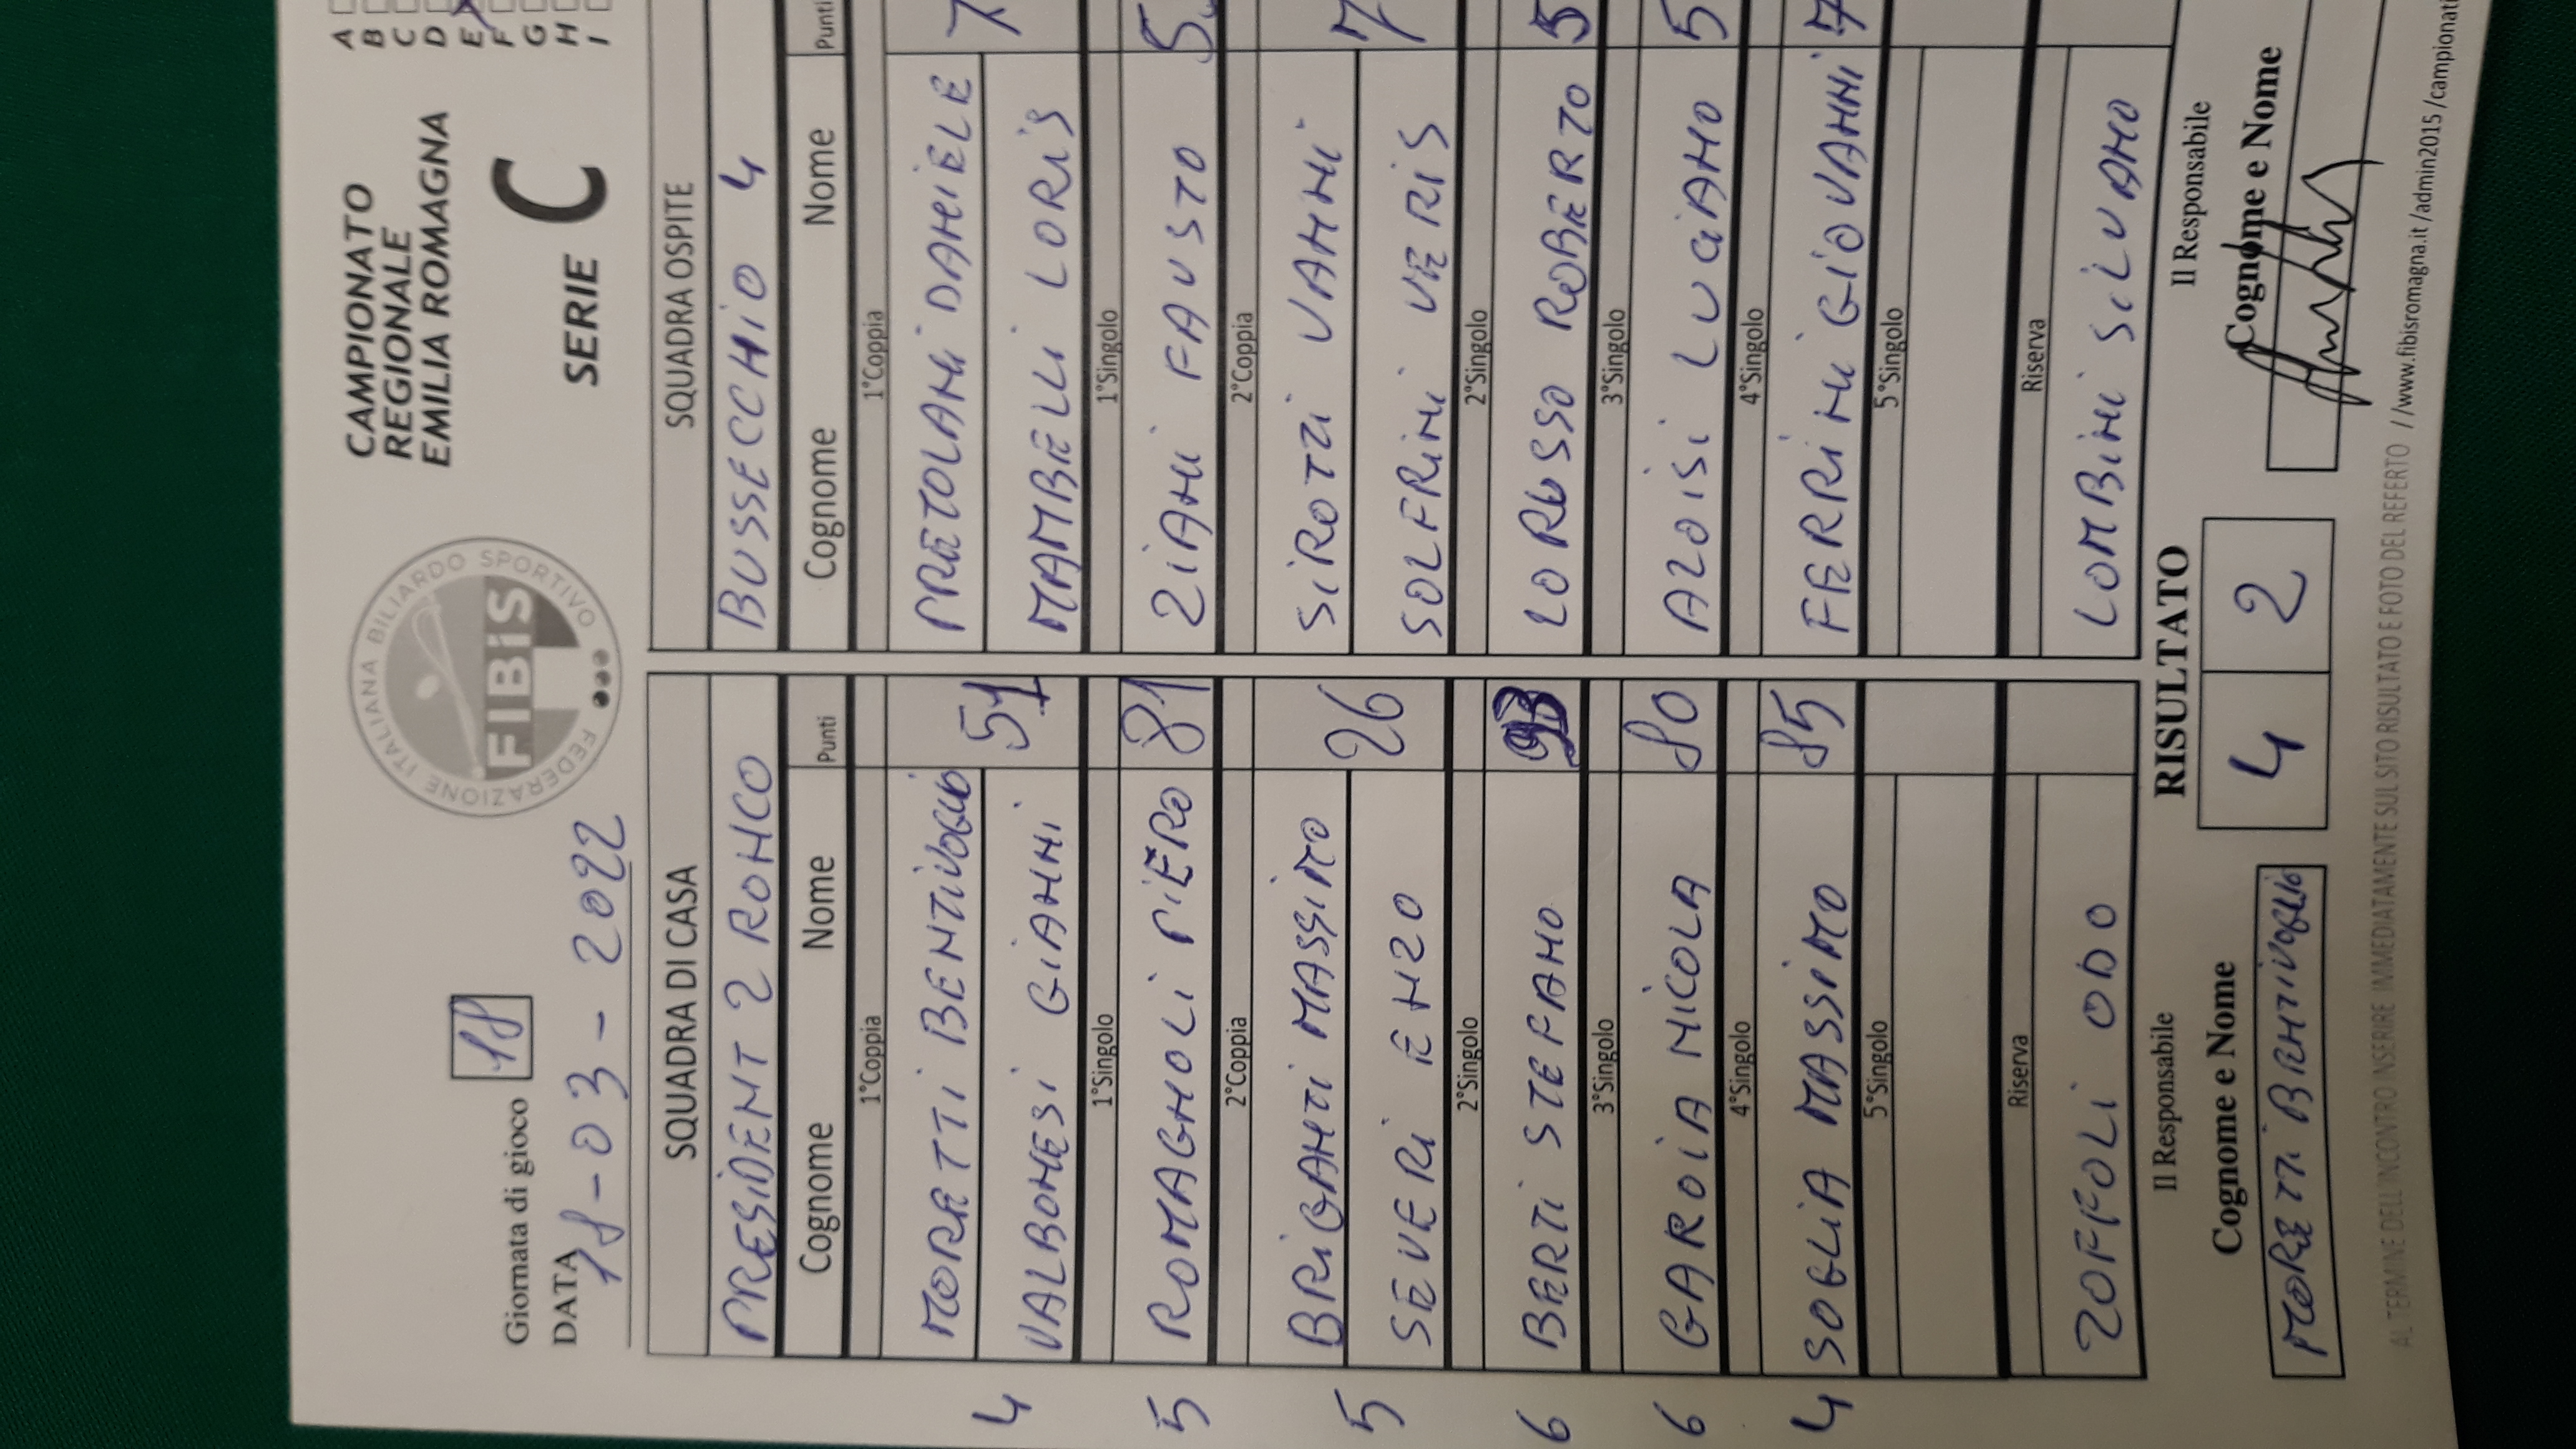 Giornata di gioco 18
DATA 18-03-2022
FEDERAZIONE ITALIANA BILIARDO SPORTIVO
FIBiS
CAMPIONATO
REGIONALE
EMILIA ROMAGNA
SERIE C
A
B
C
D
E
F
G
H
I
SQUADRA DI CASA
PRESIDENT 2 RONCO
Cognome Nome Punti
1°Coppia
MORETTI BENTIVOGLIO
4 VALBONESI GIANNI 57
1°Singolo
5 ROMAGNOLI PIERO 81
2°Coppia
BRIGANTI MASSIMO
5 SEVERI ENZO 26
2°Singolo
6 BERTI STEFANO 93
3°Singolo
6 GAROIA NICOLA 80
4°Singolo
4 SOGLIA MASSIMO 85
5°Singolo
Riserva
ZOFFOLI ODO
SQUADRA OSPITE
BUSSECCHIO 4
Cognome Nome Punti
1°Coppia
PRETOLANI DANIELE
MAMBELLI LORIS
1°Singolo
ZIANI FAUSTO
2°Coppia
SIROTTI VANNI
SOLFRINI VERIS
2°Singolo
LORUSSO ROBERTO
3°Singolo
ALOISI LUCIANO
4°Singolo
FERRINI GIOVANNI
5°Singolo
Riserva
LOMBINI SILVANO
Il Responsabile
Cognome e Nome
MORETTI BENTIVOGLIO
RISULTATO
4 2
Il Responsabile
Cognome e Nome
AL TERMINE DELL'INCONTRO INSERIRE IMMEDIATAMENTE SUL SITO RISULTATO E FOTO DEL REFERTO //www.fibisromagna.it/admin2015/campionati